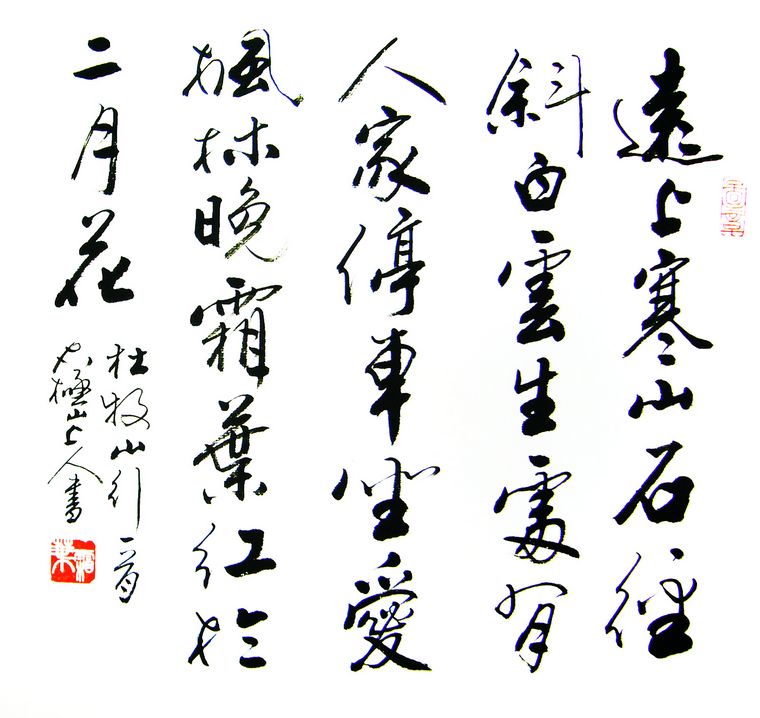 遠上寒山石徑
斜白雲生處有
人家停車坐愛
楓林晚霜葉紅於
二月花
杜牧山行一首
極山上人書